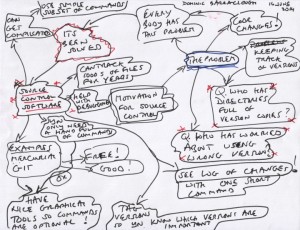 USE SIMPLE
SUBSET OF COMMANDS
CAN
GET
COMPLICATED
ITS
BEEN
SOLVED
ENTRY
BODY HAS
THIS PROBLEM
DOMINIC BARRACLOUGH
JUNE
CODE
CHANGES!
KEEPING
TRACK OF
VERSIONS
THE PROBLEM
CAN TRACK
100S OF FILES
FOR YEARS
SOURCE
CONTROL
SOFTWARE
HELP WITH
DEBUGGING
MOTIVATION
FOR SOURCE
CONTROL
Q. WHO HAS
DIRECTORIES
FULL OF
VERSION COPIES?
Q. WHO HAS WORRIED
ABOUT USING
WRONG VERSION
ONLY NEED
A HANDFUL
OF COMMANDS
EXAMPLES
MERCURIAL
GIT
FREE!
GOOD!
SEE LOG OF CHANGES
WITH ONE SHORT
COMMAND
HAVE
NICE GRAPHICAL
TOOLS SO COMMANDS
ARE OPTIONAL!
TAG
VERSIONS
SO YOU KNOW WHICH VERSIONS ARE
IMPORTANT